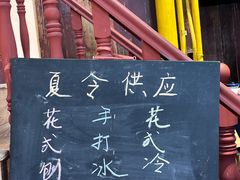 夏令供应
花式刨
手打冰
花式冷